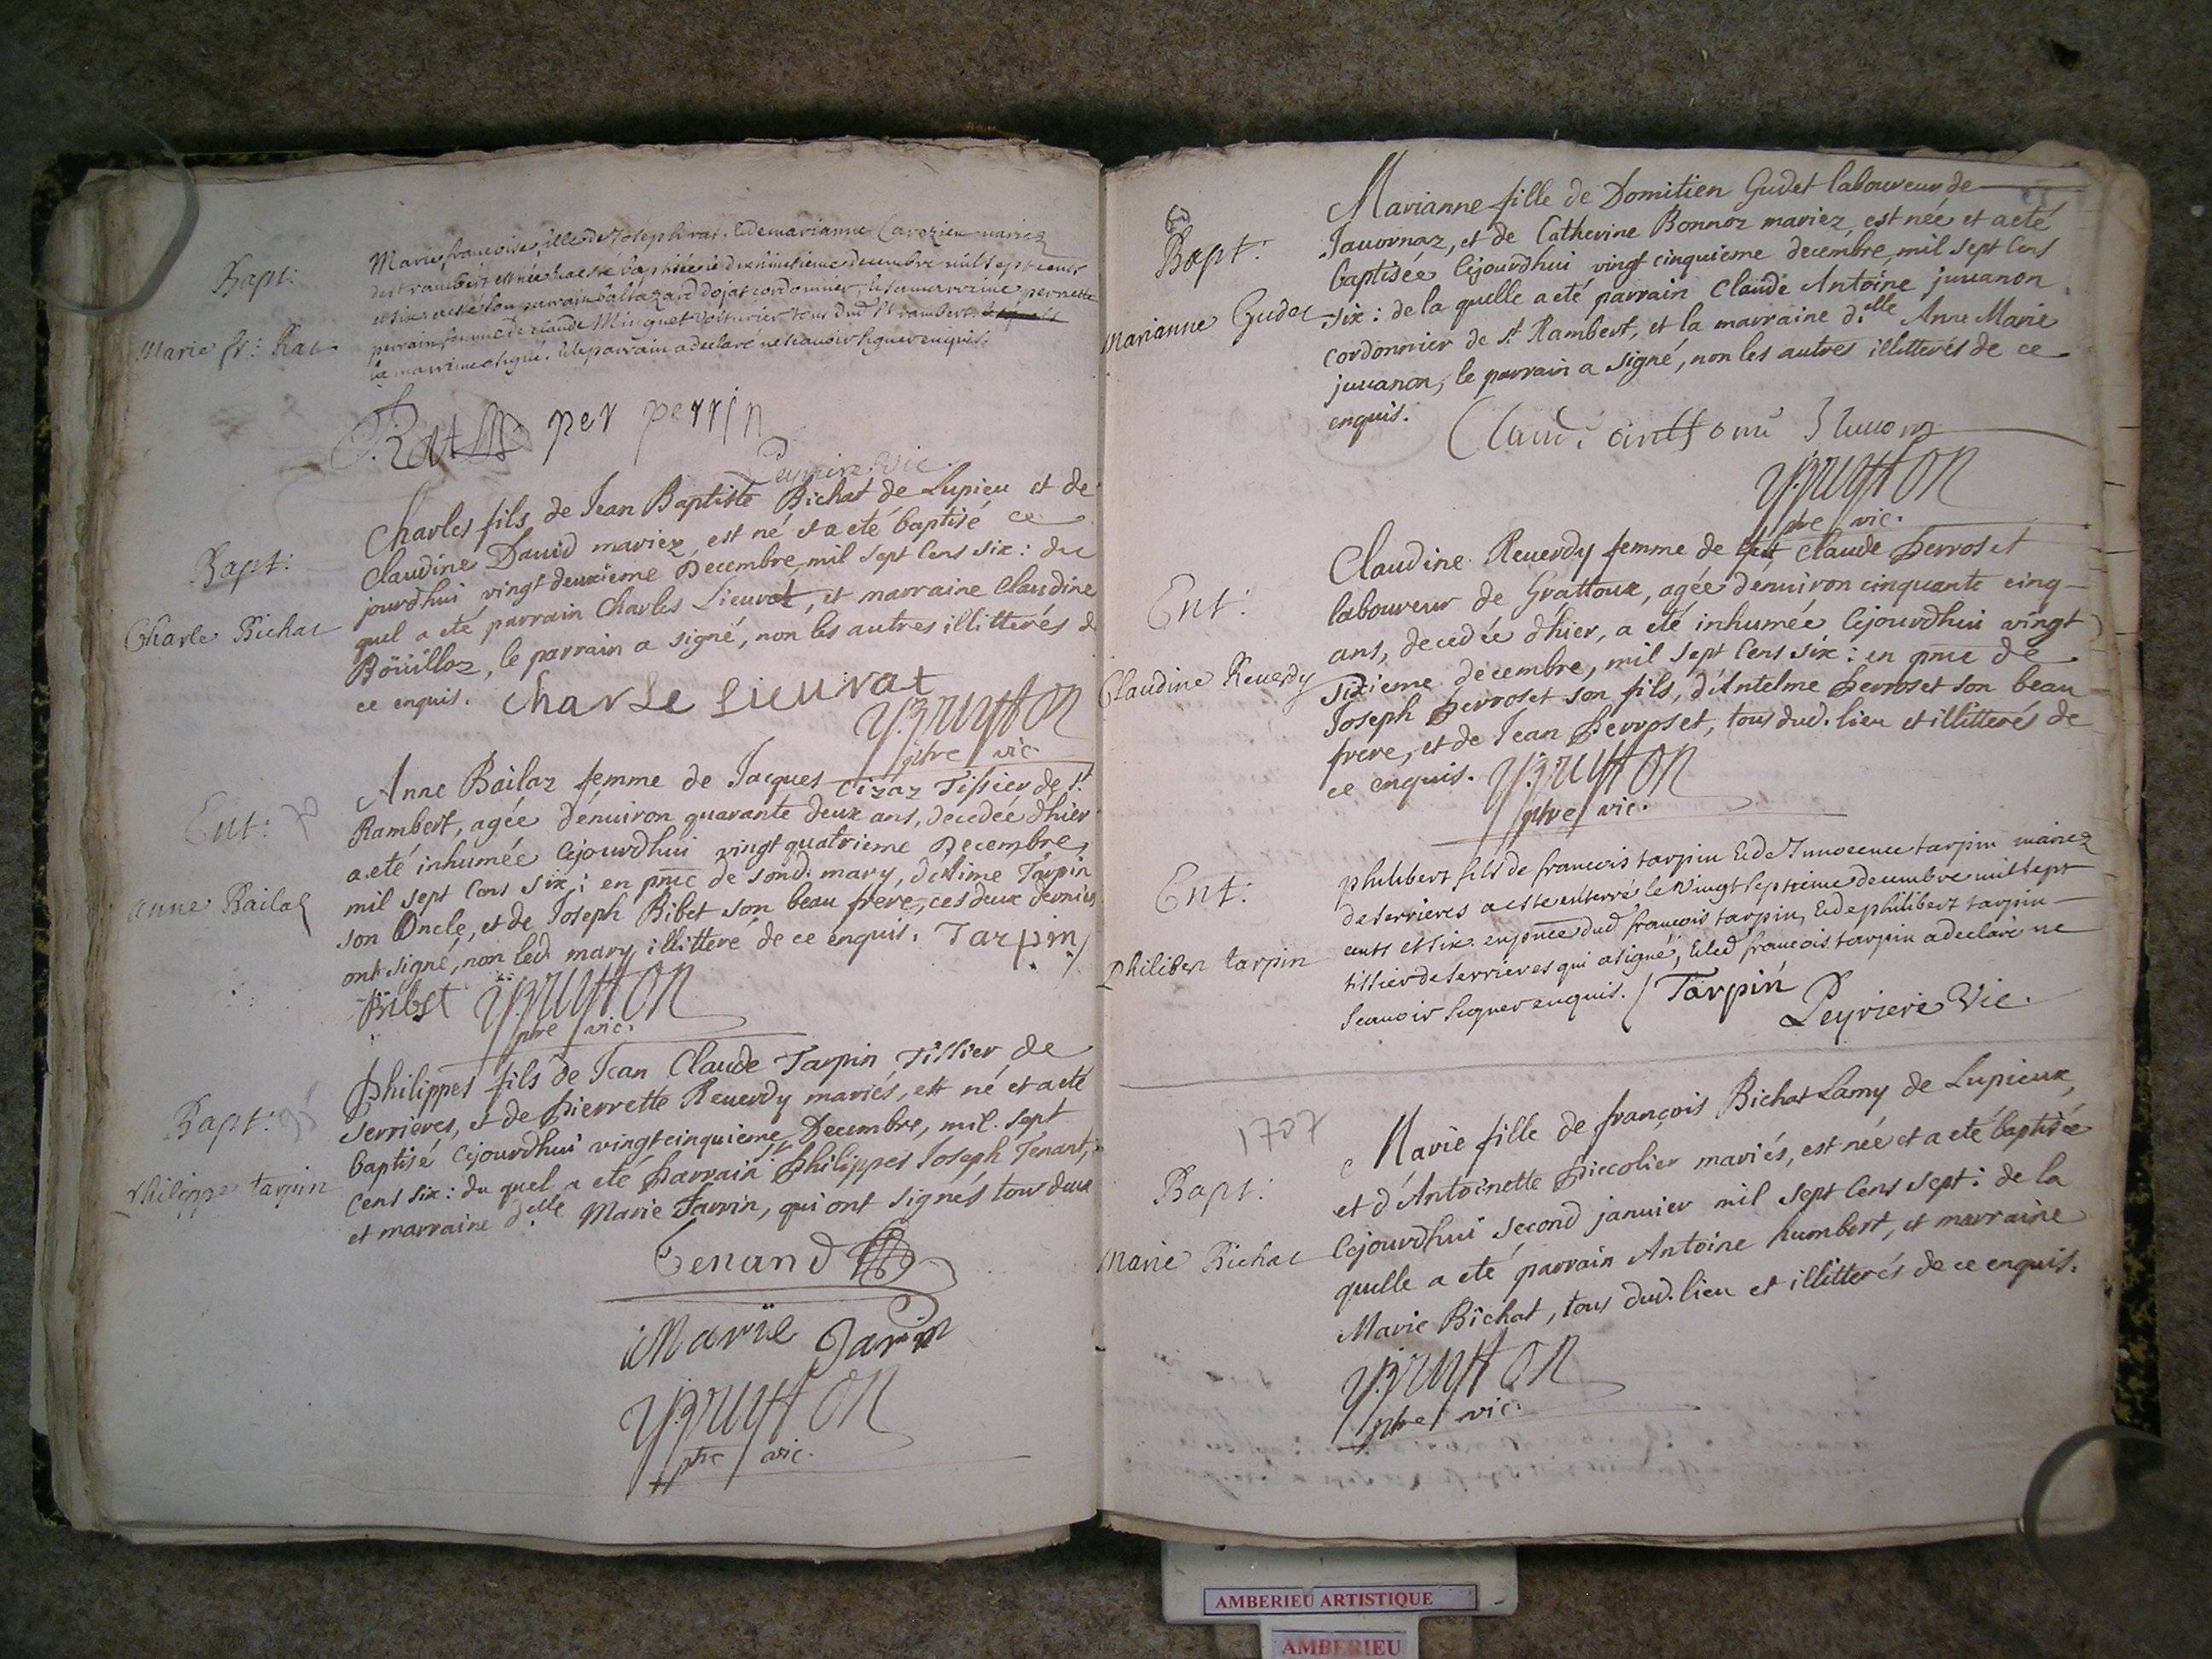 Bapt:
Marie fr: Rat
Marie francoise fille de Joseph rat. Et de marianne Carrozieu mariez
de st rambert est née et a esté baptisée le dixhuitieme decembre mil sept cents
et six. a esté son parrain baltazard dojat cordonnier, et sa marraine pernette
perrain femme de claude Micquet voiturier tous dud St rambert.
la marraine a signé. Et le parrain a declaré ne scauoir signer enquis.
Rat per perrin
Peyriere Vic.
Bapt:
Charle Bichat
Charles fils de Jean Baptiste Bichat de Lupieu et de
Claudine Dauid mariez, est né et a eté baptisé ce
jourdhui vingt deuxieme Decembre, mil sept Cens six: du
quel a eté parrain Charles Lieurat, et marraine Claudine
Boüilloz, le parrain a signé, non les autres illitterés d
ce enquis. Charle Lieurat
YBRUYTTON
ptre vic
Ent:
Anne Bailaz
Anne Bailaz femme de Jacques Cizaz Tissier de St
Rambert, agée d'enuiron quarante deux ans, decedée dhier
a eté inhumée Cejourdhui vingt quatrieme Decembre,
mil sept Cens six: en pnce de sond. mary, d'Anthelme Tarpin
son Oncle, et de Joseph Bibet son beau frere, ces deux derniers
ont signé, non led. mary illitteré de ce enquis. Tarpin
Bibet YBRUYTTON
ptre vic.
Bapt:
Philippe tarpin
Philippes fils de Jean Claude Tarpin Tissier de
Serrieres, et de Pierrette Reuerdy mariés, est né et a eté
baptisé Cejourdhui vingt cinquieme Decembre, mil sept
Cens six: du quel a eté Parrain Philippes Joseph Tenant,
et marraine d.elle Marie Jarrin, qui ont signés tous deux
Tenand
Marie Jarin
YBRUYTTON
ptre vic.
Bapt:
Marianne Gudet
Marianne fille de Domitien Gudet laboureur de
Jauornaz, et de Catherine Bonnoz mariez, est née et a eté
baptisée Cejourdhui vingt cinquieme decembre, mil sept Cens
six: de la quelle a eté parrain Claude Antoine juuanon
Cordonnier de st Rambert, et la marraine d.elle Anne Marie
juuanon, le parrain a signé, non les autres illitterés de ce
enquis.
YBRUYTTON
ptre vic.
Ent:
Claudine Reuerdy
Claudine Reuerdy femme de Claude Perroset
laboureur de Grattoux, agée denuiron cinquante cinq
ans, decedée dhier, a eté inhumée Cejourdhui vingt
sixieme decembre, mil sept Cens six: en pnce de
Joseph Perroset son fils, d'Antelme Perroset son beau
frere, et de Jean Perroset, tous dud. lieu et illitterés de
ce enquis. YBRUYTTON
ptre vic.
Ent:
Philibert tarpin
philibert fils de francois tarpin Et de Innocence tarpin mariez
de serrieres a esté enterré le vingt septieme decembre mil sept
cents et six. en pnce dud francois tarpin, Et de philibert tarpin
tissier de serrieres qui a signé, Et led francois tarpin a declaré ne
scauoir signer enquis. Tarpin
Peyriere Vic.
1707
Bapt:
Marie Bichat
Marie fille de françois Bichat Lamy de Lupieux,
et d'Antoinette Piccolier mariés, est née et a eté baptisée
Cejourdhui second januier mil sept Cens sept: de la
quelle a eté parrain Antoine humbert, et marraine
Marie Bichat, tous dud. lieu et illitterés de ce enquis.
YBRUYTTON
ptre vic.
AMBERIEU ARTISTIQUE
AMBERIEU